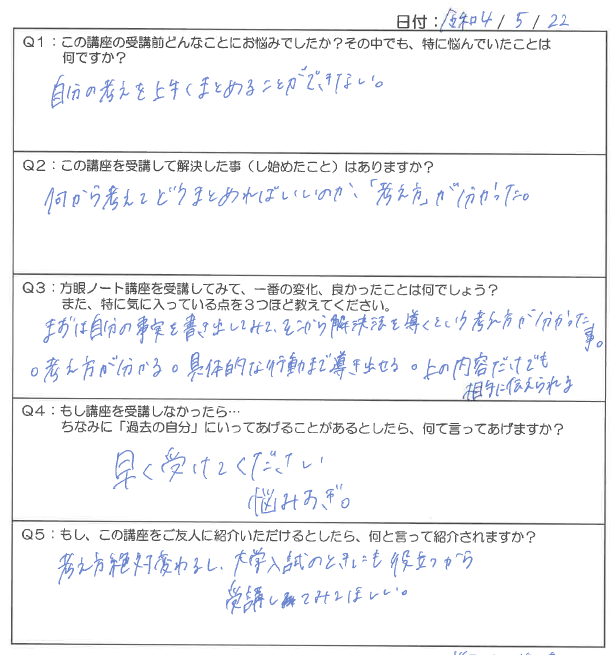 日付：令和4 / 5 / 22
Q1：この講座の受講前どんなことにお悩みでしたか？その中でも、特に悩んでいたことは
何ですか？
自分の考えを上手くまとめることができない。
Q2：この講座を受講して解決した事（し始めたこと）はありますか？
何から考えてどうまとめればいいのか、「考え方」が分かった。
Q3：方眼ノート講座を受講してみて、一番の変化、良かったことは何でしょう？
また、特に気に入っている点を３つほど教えてください。
まずは自分の事実を書き出してみて、そこから解決法を導くという考え方が分かった事。
○考え方が分かる ○具体的な行動まで導き出せる ○上の内容だけでも
相手に伝えられる
Q4：もし講座を受講しなかったら…
ちなみに「過去の自分」にいってあげることがあるとしたら、何て言ってあげますか？
早く受けてください
悩みすぎ。
Q5：もし、この講座をご友人に紹介いただけるとしたら、何と言って紹介されますか？
考え方絶対変わるし、大学入試のときにも役立つから
受講してみてほしい。